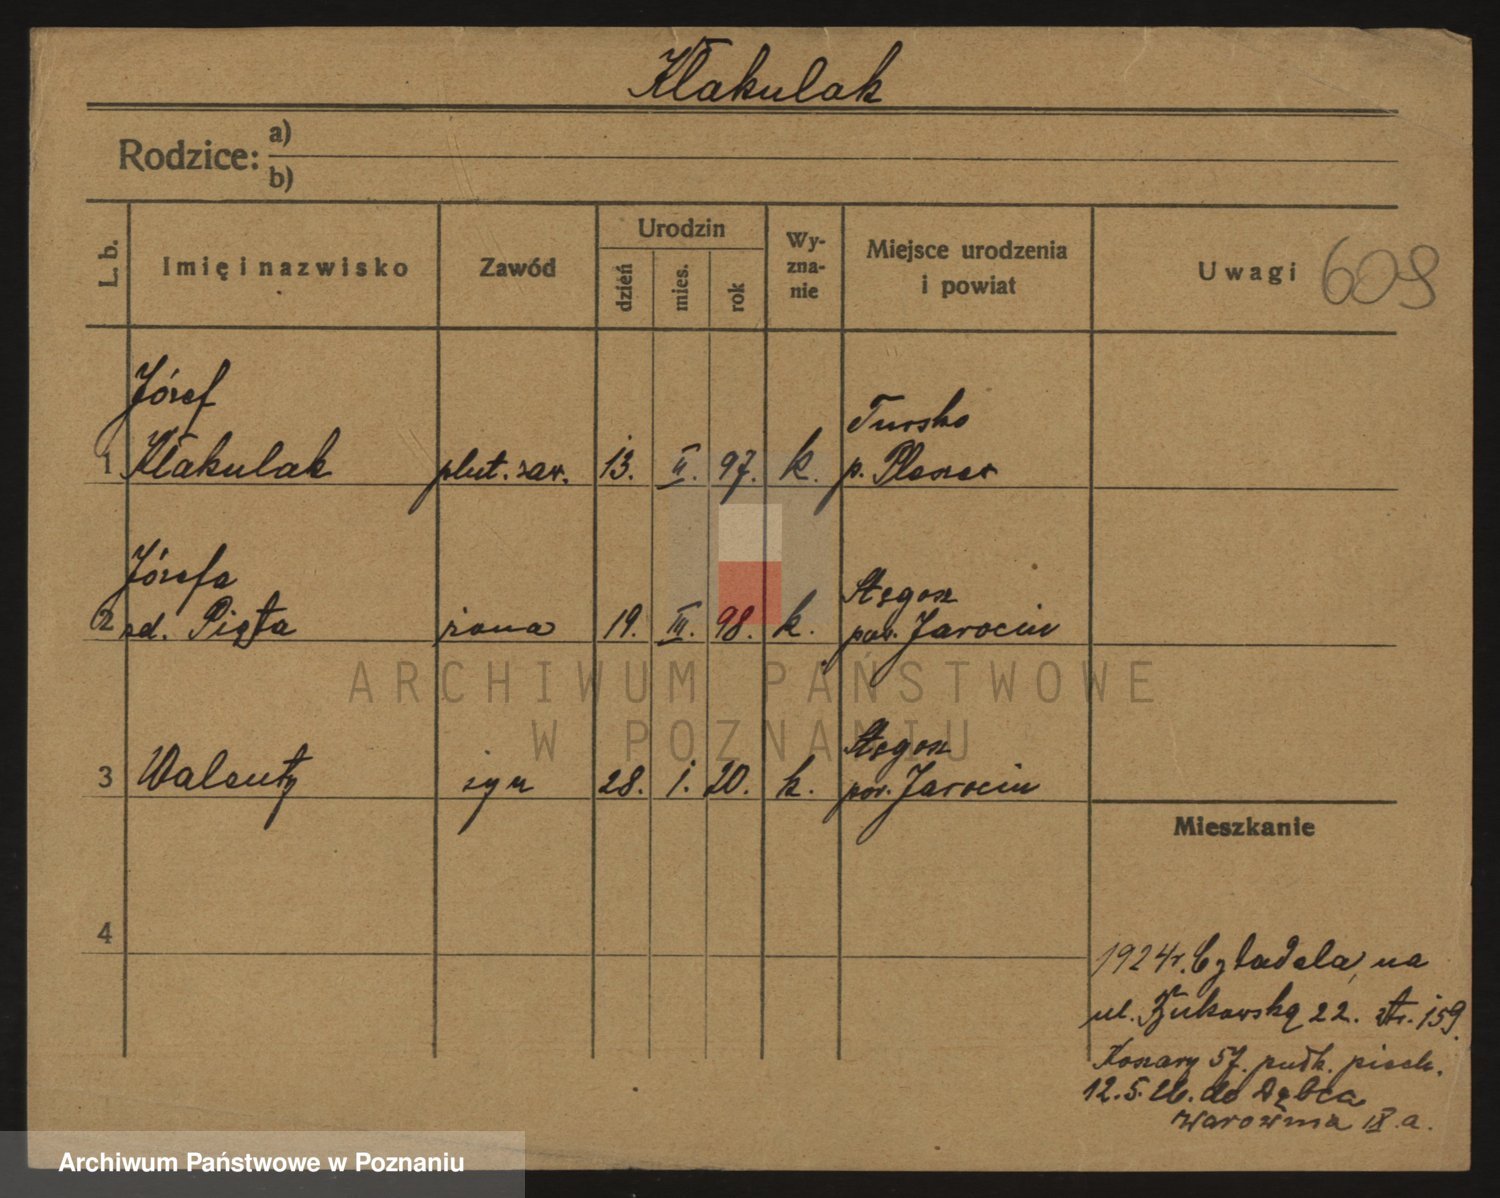 Kłakulak
Rodzice: a)
b)
L. b.
Imię i nazwisko
Zawód
Urodzin
dzień
mies.
rok
Wy-
zna-
nie
Miejsce urodzenia
i powiat
Uwagi
609
Józef
1 Kłakulak plut. zaw. 13. II. 97. k.
Tursko
p. Pleszew
Józefa
2 zd. Pięta żona 19. III. 98. k.
pow. Jarocin
3 Walenty syn 28. I. 20. k.
pow. Jarocin
4
Mieszkanie
1924 r. Cytadela, na
ul. Bukowską 22. str. 159.
Koszary 57. pułk. piech.
12. 5. 26. do Dębca
Warownia IX. a.
ARCHIWUM PAŃSTWOWE
W POZNANIU
Archiwum Państwowe w Poznaniu